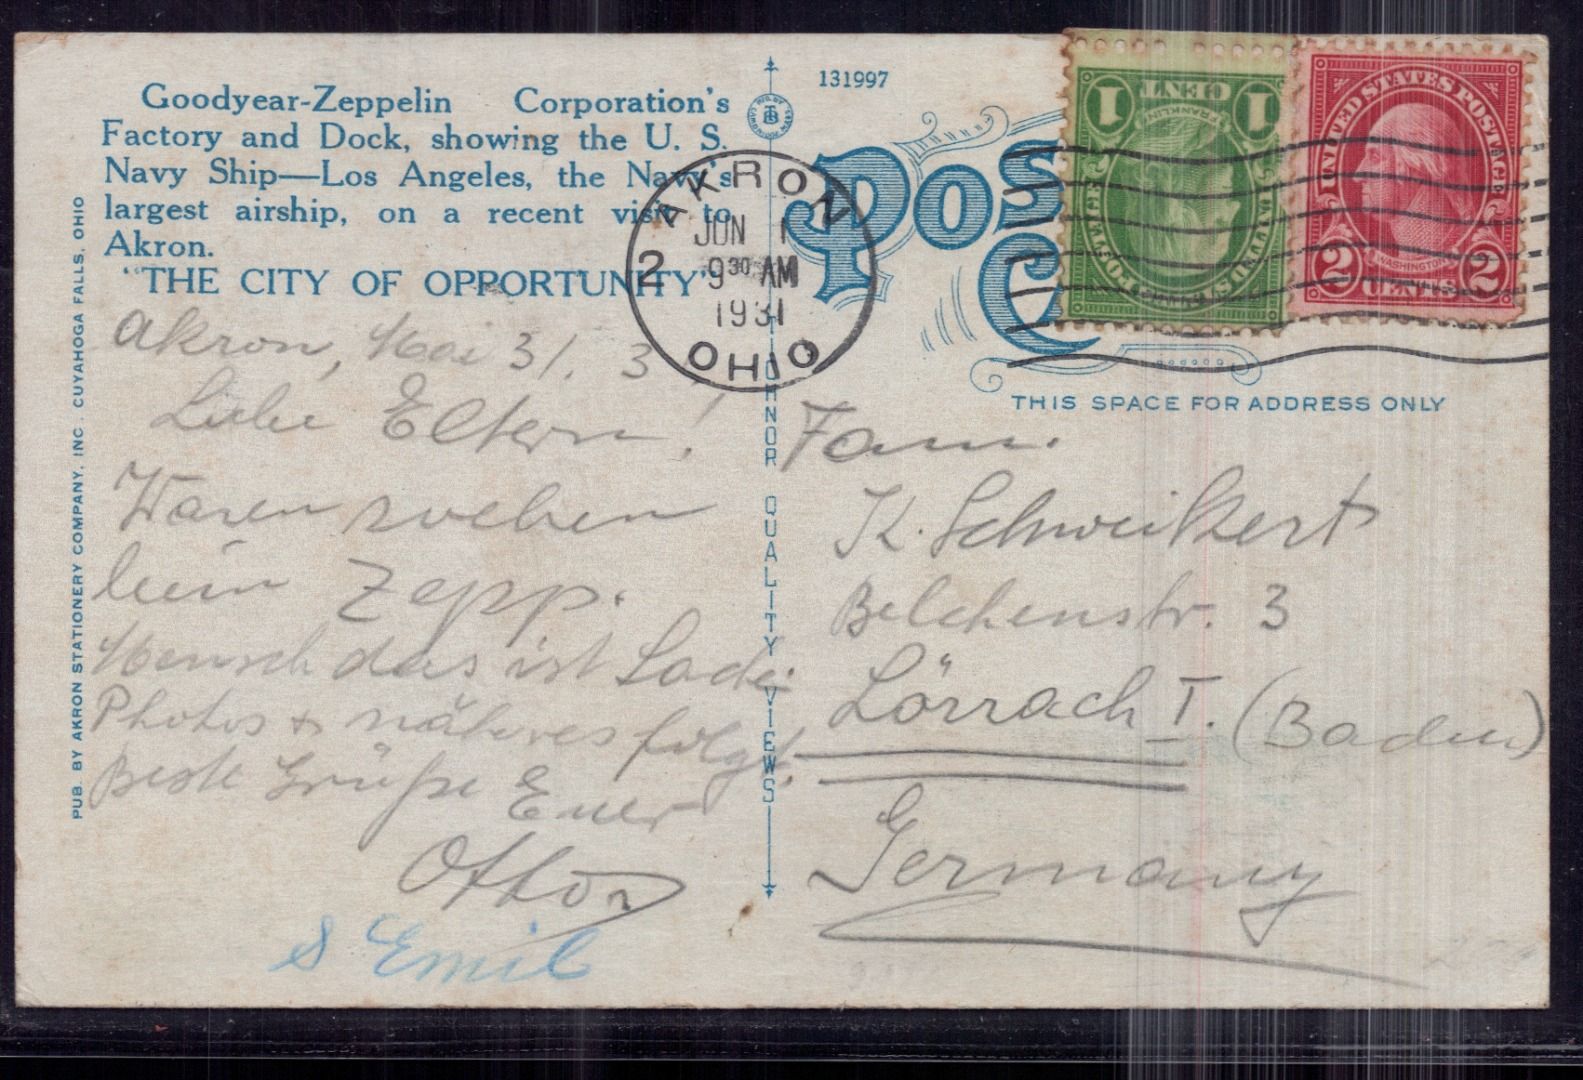 Goodyear-Zeppelin Corporation's
Factory and Dock, showing the U. S.
Navy Ship—Los Angeles, the Navy's
largest airship, on a recent visit to
Akron.
"THE CITY OF OPPORTUNITY"
Akron, Mai 31. 3
Liebe Eltern!
Waren soeben
beim Zepp.
Mensch das ist
Photos + näheres folgt.
Beste Grüße Euer
Otto
& Emil
PUB. BY AKRON STATIONERY COMPANY, INC. CUYAHOGA FALLS, OHIO
QUALITY VIEWS
131997
AKRON
JUN 1
2 9 30 AM
1931
OHIO
POST
C
1 CENT 1
FRANKLIN
UNITED STATES POSTAGE
UNITED STATES POSTAGE
WASHINGTON
2 CENTS 2
THIS SPACE FOR ADDRESS ONLY
Fam.
K. Schweikert
Belchenstr. 3
Lörrach I. (Baden)
Germany